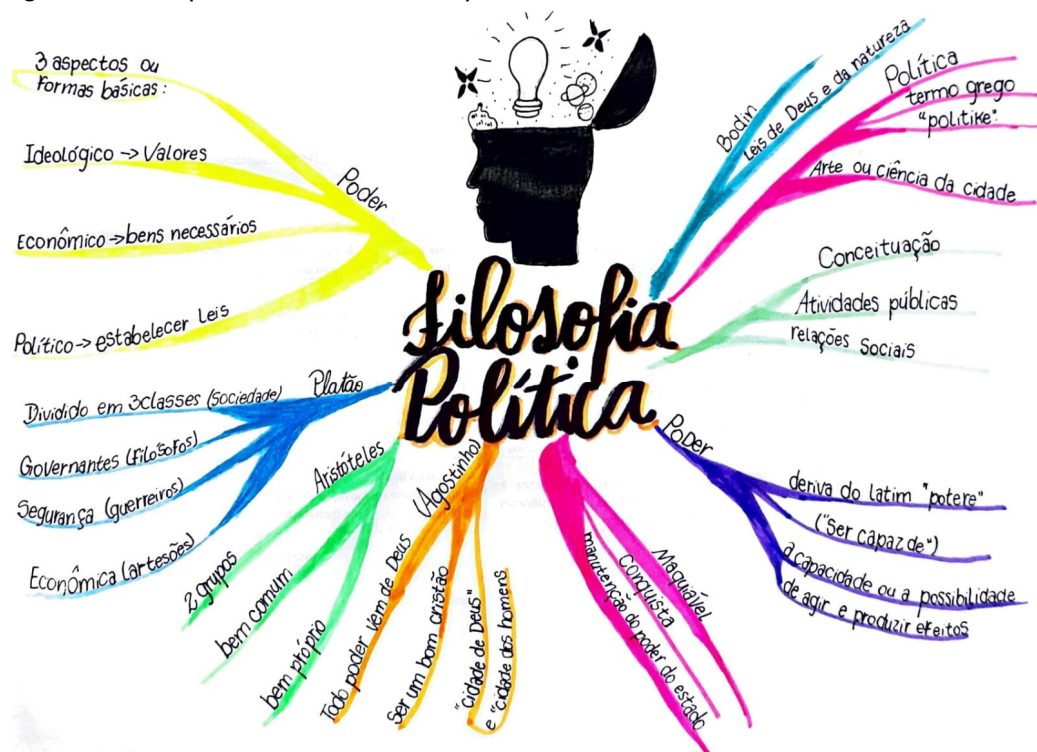 Filosofia
Política
3 aspectos ou
Formas básicas:
Poder
Ideológico → Valores
Econômico → bens necessários
Político → estabelecer leis
Platão
Dividido em 3 classes (sociedade)
Governantes (Filósofos)
Segurança (guerreiros)
Econômica (artesões)
Aristóteles
2 grupos
bem comum
bem próprio
(Agostinho)
Todo poder vem de Deus
Ser um bom cristão
"cidade de Deus"
e "cidade dos homens
Maquiável
Conquista
manutenção do poder do estado
Poder
deriva do latim "potere"
("Ser capaz de")
a capacidade ou a possibilidade
de agir e produzir efeitos
Conceituação
Atividades públicas
relações sociais
Política
termo grego
"politike".
Arte ou ciência da cidade
Bodin
Leis de Deus e da natureza